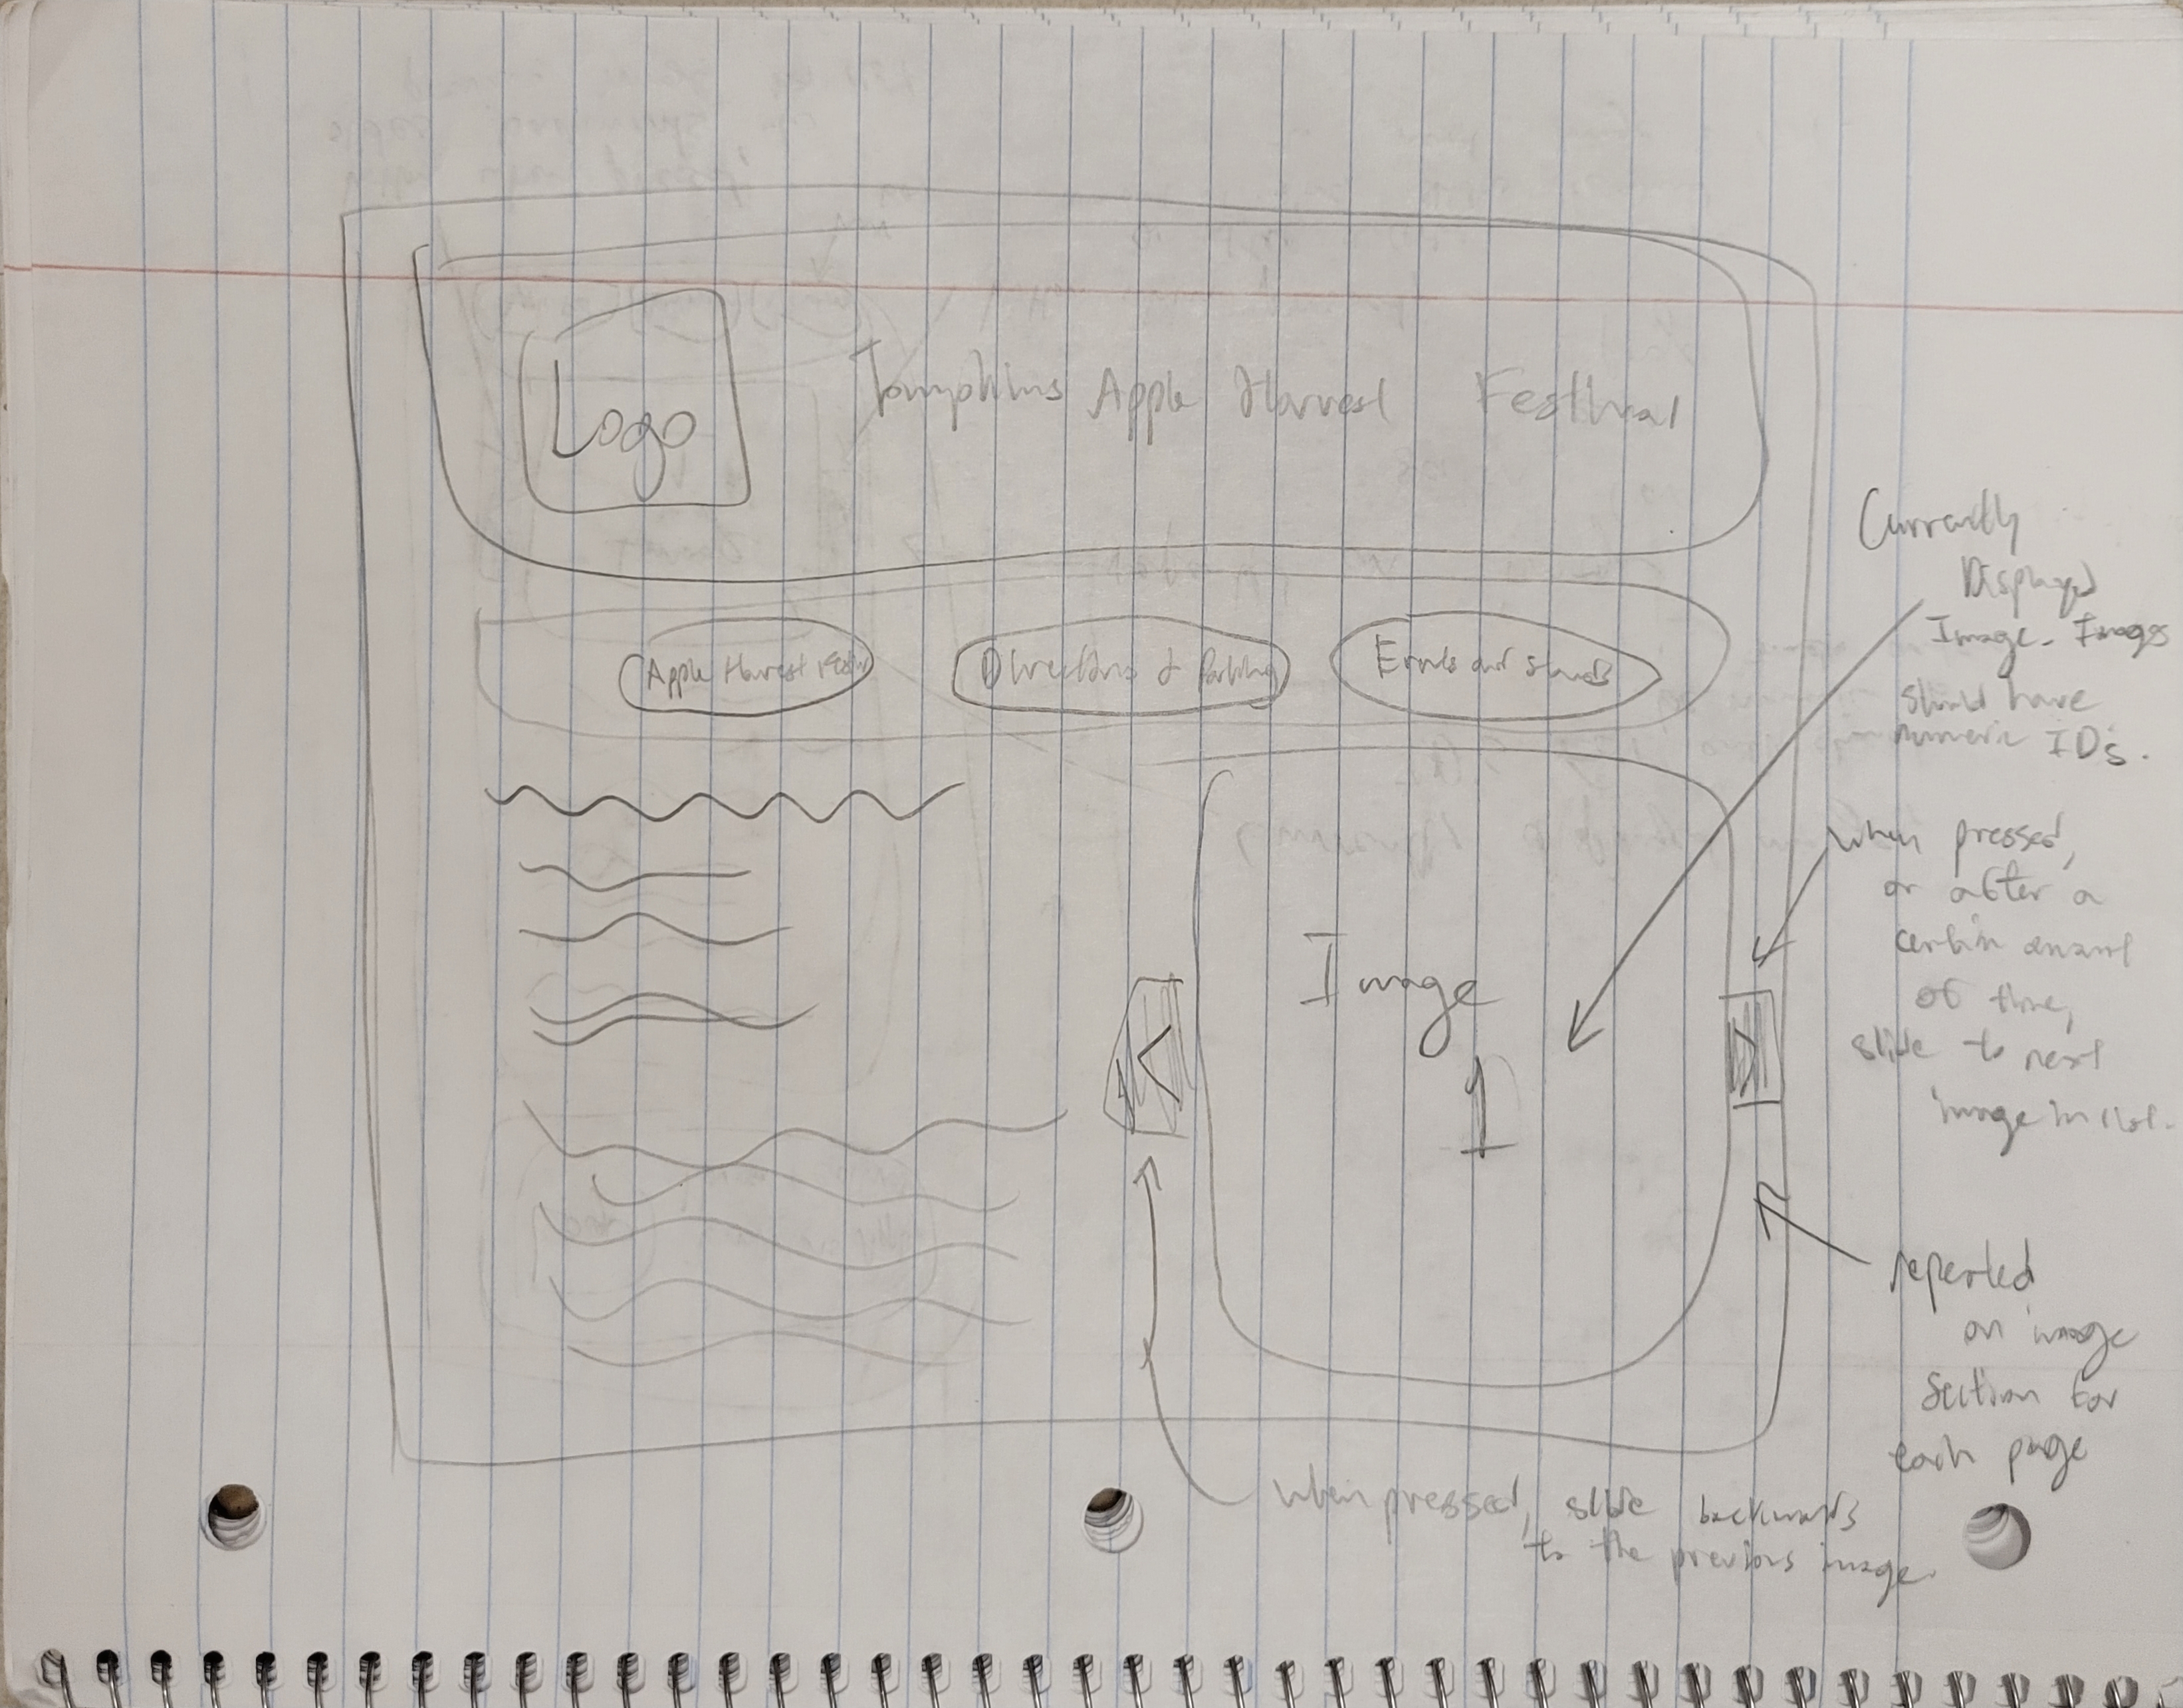 Logo
Tompkins Apple Harvest Festival
Apple Harvest
Directions & Parking
Events and stands
Currently
Displayed
Image. Images
should have
numeric IDs.
when pressed,
or after a
certain amount
of time,
slide to next
image in list.
Image
1
<
>
repeated
on image
section for
each page
when pressed, slide backwards
to the previous image.